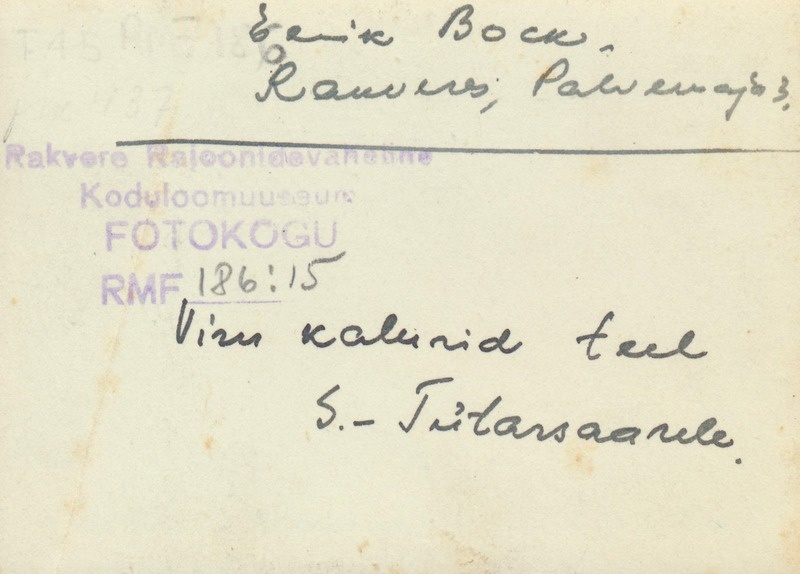 Eerik Bock.
Rakveres, Palvemaja 3.
Rakvere Rajoonidevaheline
Koduloomuuseum
FOTOKOGU
RMF 186:15
Viru kalurid teel
S.- Tütarsaarele.